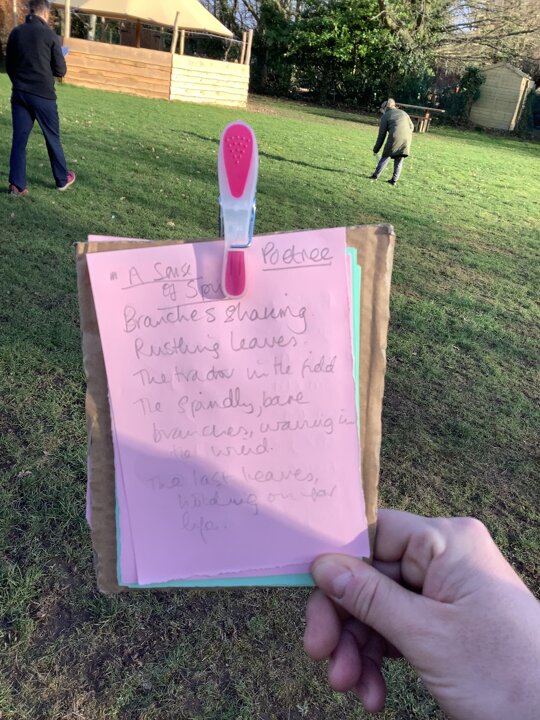 A Sense Poetree
of Spr
Branches Shaking.
Rustling Leaves.
The tractor in the field
The spindly, bare
branches, waving in
the wind.
The last leaves,
holding on for
life.